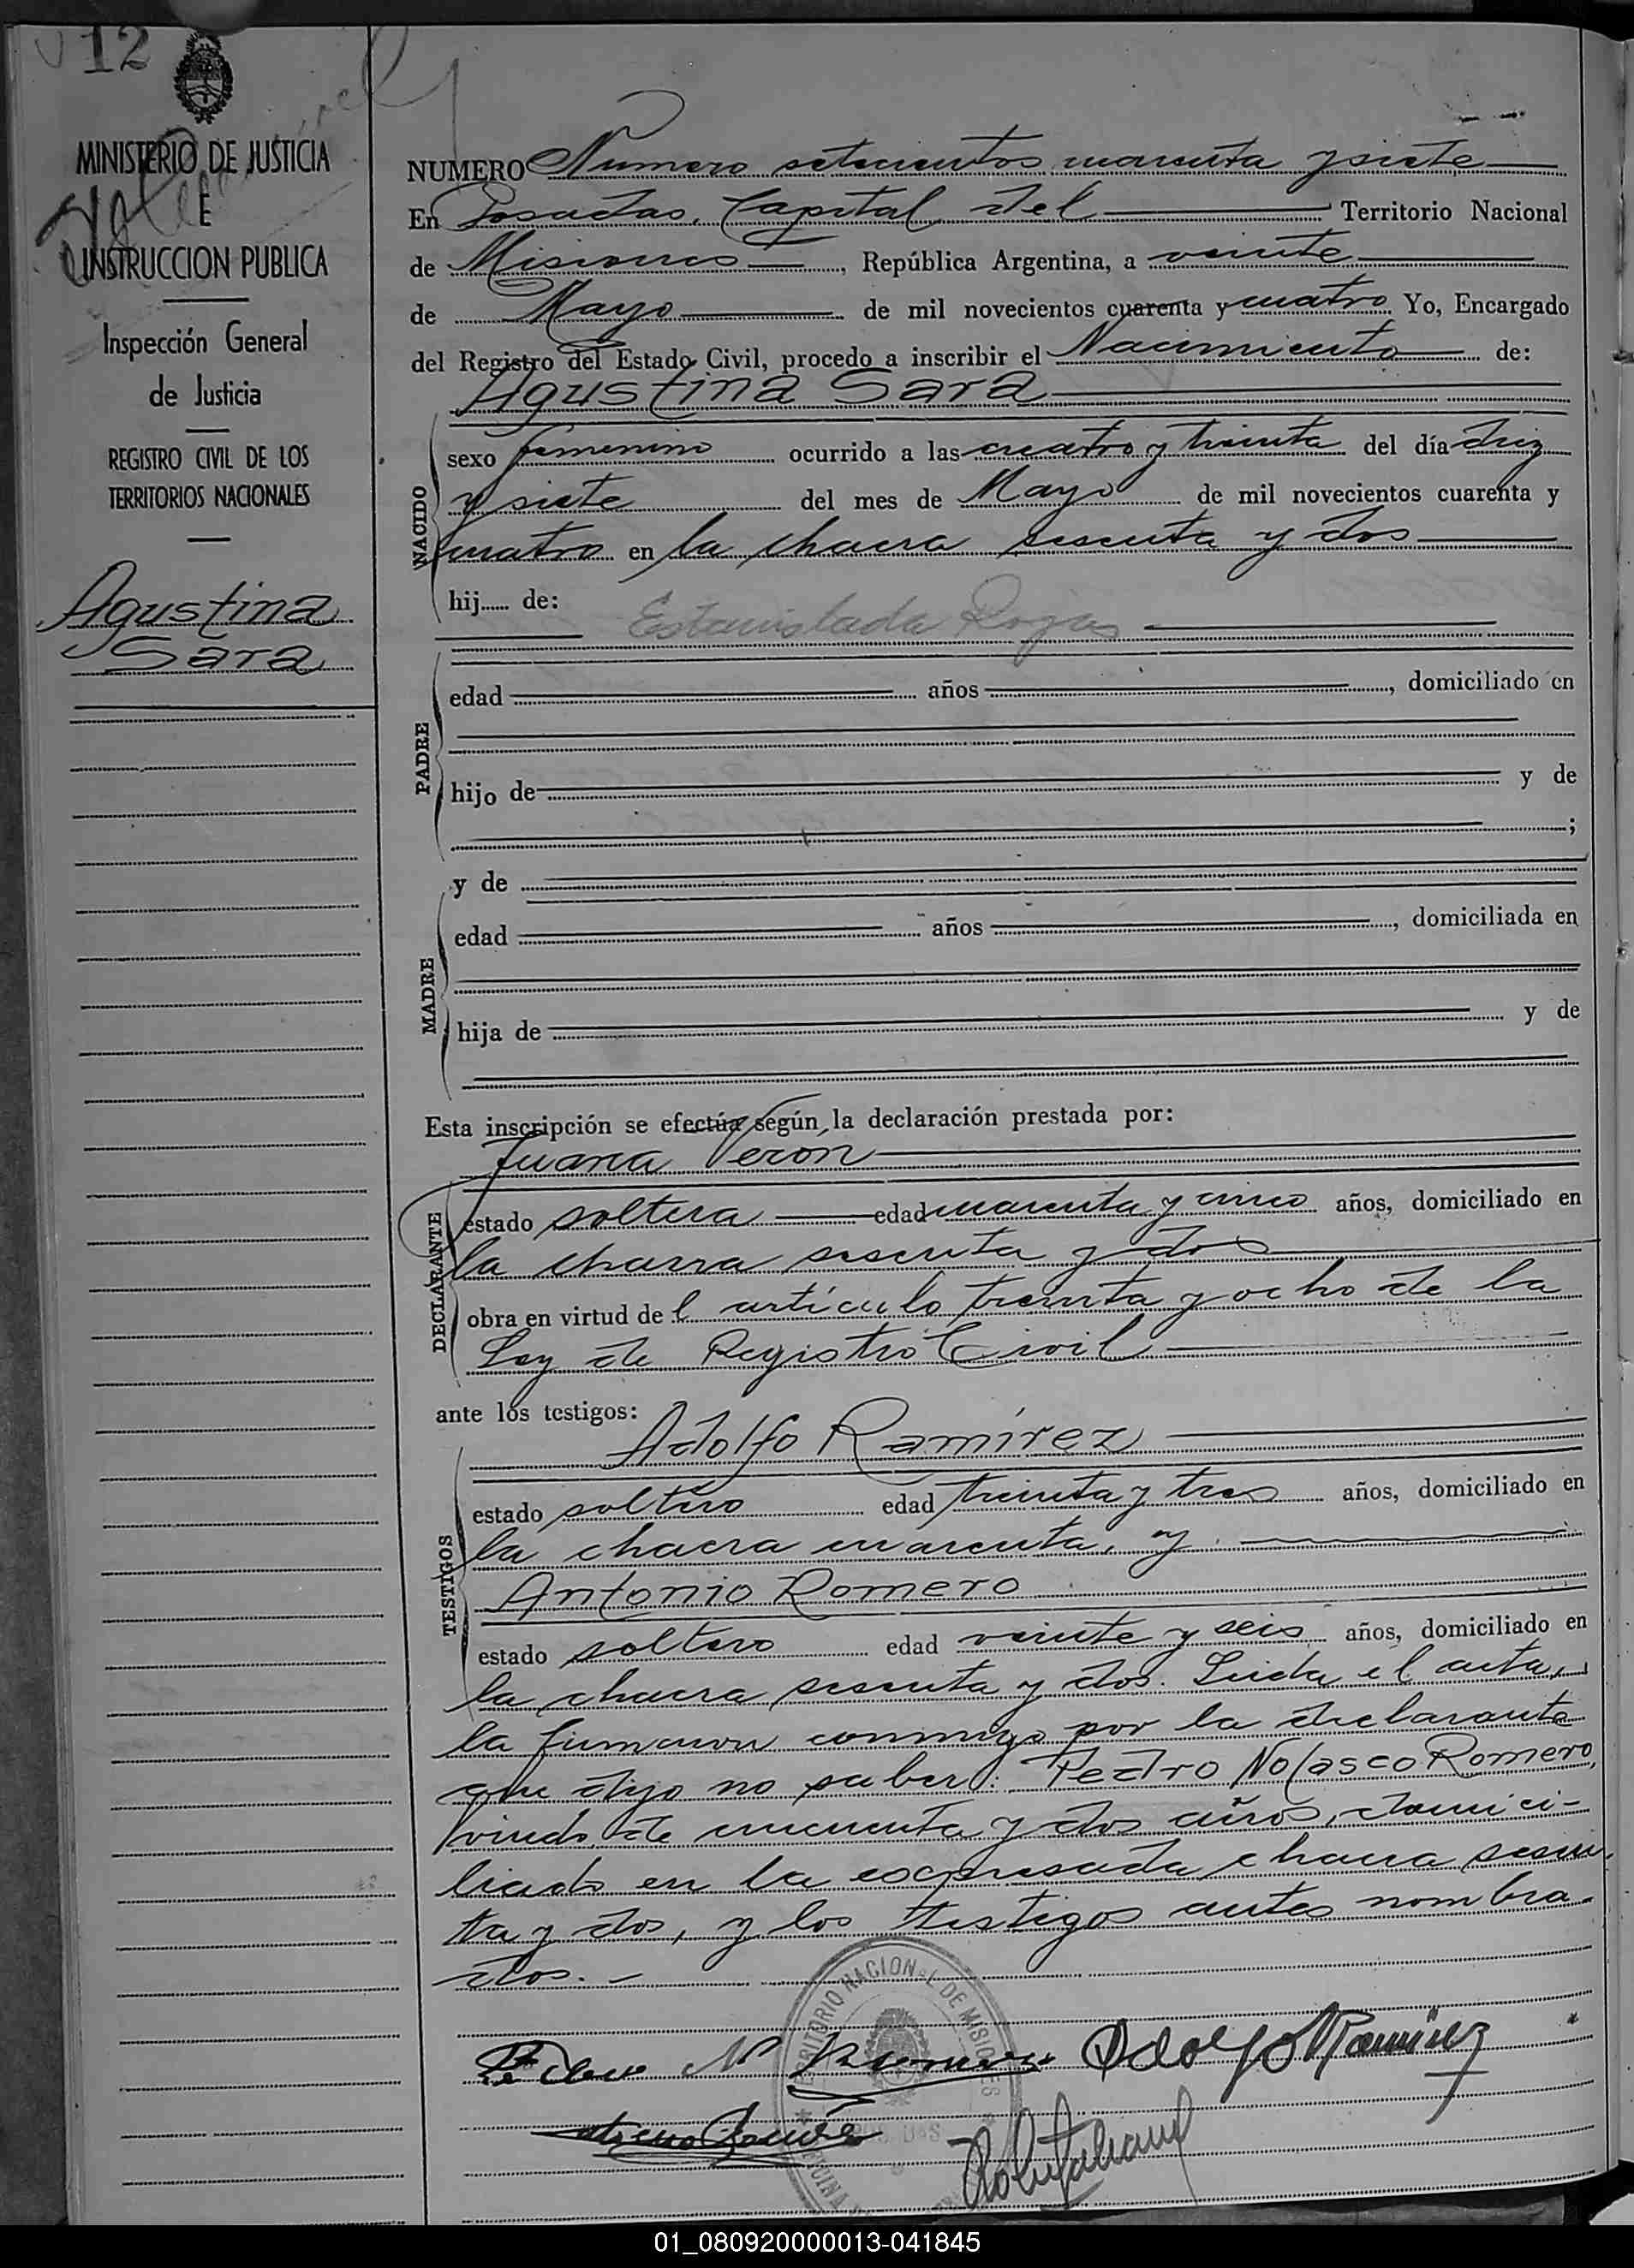 12
MINISTERIO DE JUSTICIA
E
INSTRUCCION PUBLICA
Inspección General
de Justicia
REGISTRO CIVIL DE LOS
TERRITORIOS NACIONALES
Agustina
Sara
NUMERO Numero setecientos cuarenta y siete
En Posadas, Capital del Territorio Nacional
de Misiones, República Argentina, a veinte
de Mayo de mil novecientos cuarenta y cuatro Yo, Encargado
del Registro del Estado Civil, procedo a inscribir el Nacimiento de:
Agustina Sara
NACIDO
sexo femenino ocurrido a las cuatro y treinta del día diez
y siete del mes de Mayo de mil novecientos cuarenta y
cuatro en la chacra sesenta y dos
hij...... de:
Estanislada Rojas
PADRE
edad años, domiciliado en
hijo de y de
;
y de
MADRE
edad años, domiciliada en
hija de y de
Esta inscripción se efectúa según la declaración prestada por:
Juana Veron
DECLARANTE
estado soltera edad cuarenta y cinco años, domiciliado en
la chacra sesenta y dos
obra en virtud del artículo treinta y ocho de la
Ley de Registro Civil
ante los testigos:
Adolfo Ramírez
TESTIGOS
estado soltero edad treinta y tres años, domiciliado en
la chacra cuarenta, y
Antonio Romero
estado soltero edad veinte y seis años, domiciliado en
la chacra sesenta y dos. Leida el acta,
la firmaron conmigo por la declarante
que dijo no saber: Pedro Nolasco Romero,
viudo, de cincuenta y dos años, domici-
liado en la expresada chacra sesen-
ta y dos, y los testigos antes nombra-
dos.-
TERRITORIO NACIONAL DE MISIONES
Pedro N Romero Adolfo Ramirez
01_080920000013-041845